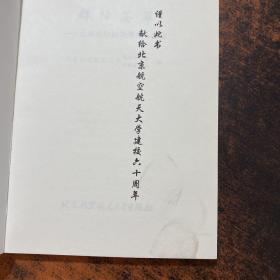 谨以此书
献给北京航空航天大学建校六十周年